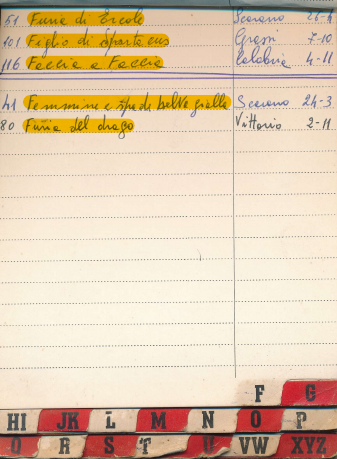 51 Furia di Ercole Scarano 26-4
101 Figlio di Spartacus Grassi 7-10
116 Faccia a Faccia Calabria 4-11
41 Femmine e belve gialle Scarano 24-3
80 Furia del drago Vittorio 2-11
F G
HI JK L M N O P
Q R S T U VW XYZ